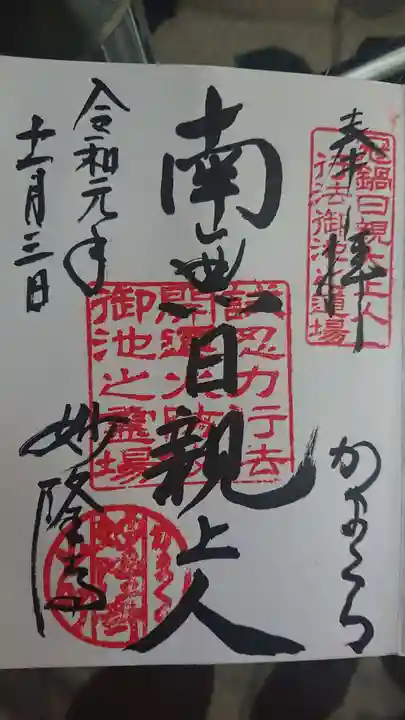 奉拝
かまくら
冠鍋日親上人
行法御池道場
南無日親上人
御池之霊場
令和元年
十一月三日
妙隆寺